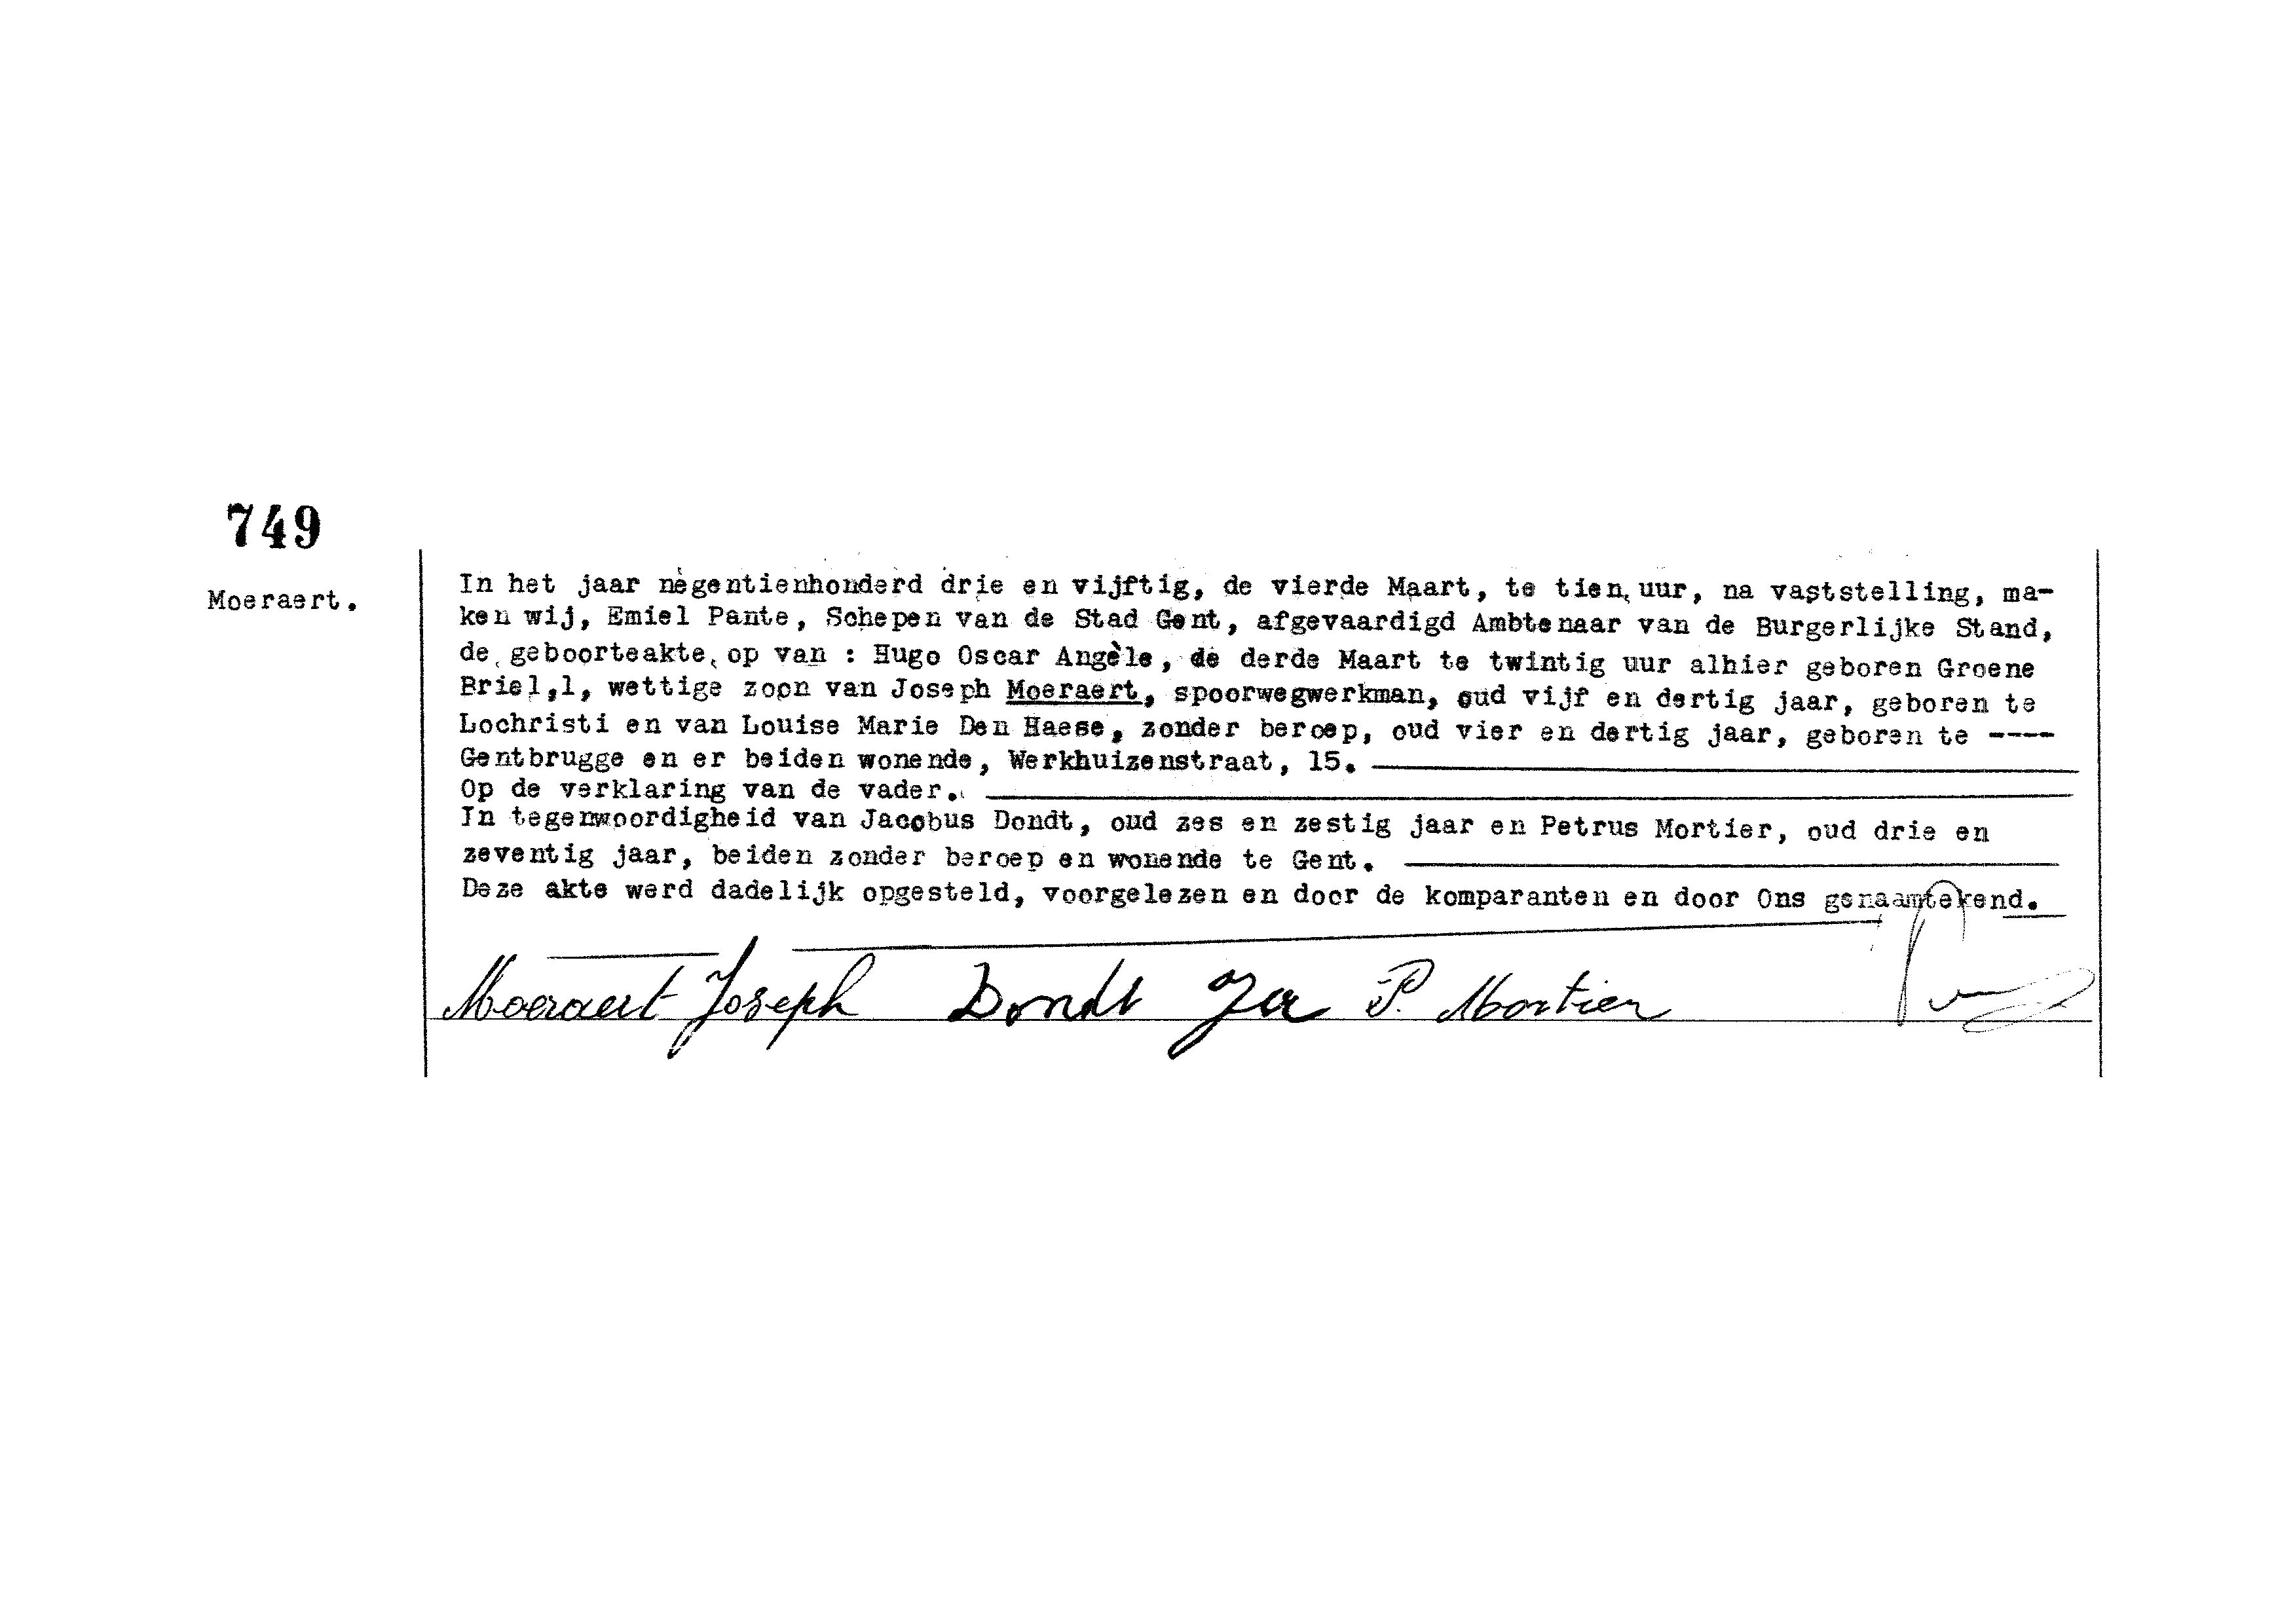 749
Moeraert.
In het jaar negentienhonderd drie en vijftig, de vierde Maart, te tien uur, na vaststelling, ma-
ken wij, Emiel Pante, Schepen van de Stad Gent, afgevaardigd Ambtenaar van de Burgerlijke Stand,
de geboorteakte op van : Hugo Oscar Angèle, de derde Maart te twintig uur alhier geboren Groene
Briel,1, wettige zoon van Joseph Moeraert, spoorwegwerkman, oud vijf en dertig jaar, geboren te
Lochristi en van Louise Marie Den Haese, zonder beroep, oud vier en dertig jaar, geboren te ----
Gentbrugge en er beiden wonende, Werkhuizenstraat, 15.
Op de verklaring van de vader.
In tegenwoordigheid van Jacobus Dondt, oud zes en zestig jaar en Petrus Mortier, oud drie en
zeventig jaar, beiden zonder beroep en wonende te Gent.
Deze akte werd dadelijk opgesteld, voorgelezen en door de komparanten en door Ons genaamtekend.
Moeraert Joseph Dondt Ja P. Mortier